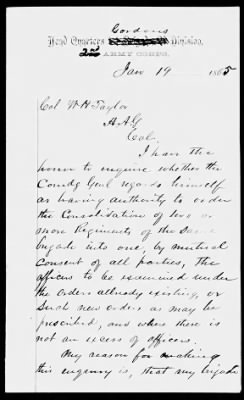 Gordons
Head Quarters Division,
2nd ARMY CORPS,
Jan 19 1865
Col W H Taylor
A. A. G
Colo,
I have the
honor to enquire whether the
Comdg Genl regards himself
as having authority to order
the Consolidation of two or
more Regiments of the same
brigade into one, by mutual
consent of all parties, the
officers to be examined under
the orders already existing, or
Such new orders as may be
prescribed, and where there is
not an excess of officers.
My reason for making
this enquiry is, that my brigade